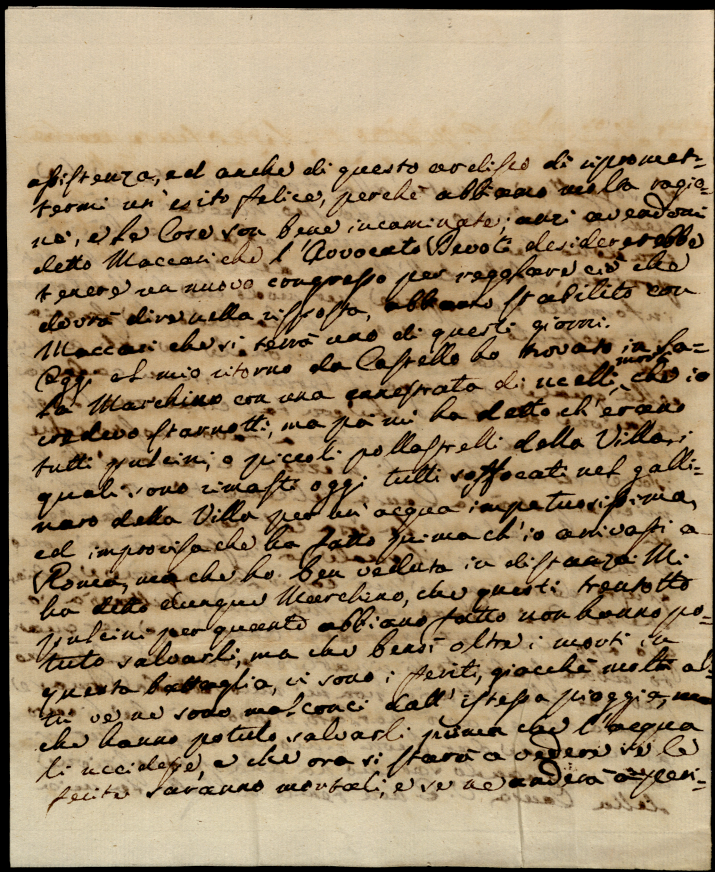 assistenza, ed anche di questo ardisco di ripromet-
termi un'esito felice, perchè abbiamo molta ragio-
ne, e le Cose son bene incaminate; anzi avendomi
detto Maccari che l'Avvocato Devoti desidererebbe
tenere un nuovo congresso per regolare ciò che
dovrà dire nella risposta, abbiamo stabilito con
Maccari che si terrà uno di questi giorni.
Oggi al mio ritorno da Castello ho trovato in Sa-
la Marchino con una canestrata di ucelli morti, che io
credevo starnotti, ma poi mi ha detto ch'erano
tutti pulcini, o piccoli pollastrelli della Villa, i
quali sono rimasti oggi tutti soffocati nel galli-
naro della Villa per un'acqua impetuosissima,
ed improvisa che ha fatto prima ch'io arrivassi a
Roma, ma che ho ben veduta in distanza. Mi
ha detto dunque Marchino, che questi trentotto
pulcini per quanto abbiano fatto non hanno po-
tuto salvarli, ma che bensì oltre i morti in
questa battaglia, ci sono i feriti, giacchè molti al-
tri ve ne sono malconci dall'istessa pioggia, ma
che hanno potuto salvarli prima che l'acqua
li uccidesse, e che ora si starà a vedere se le
ferite saranno mortali, e se ne anderà